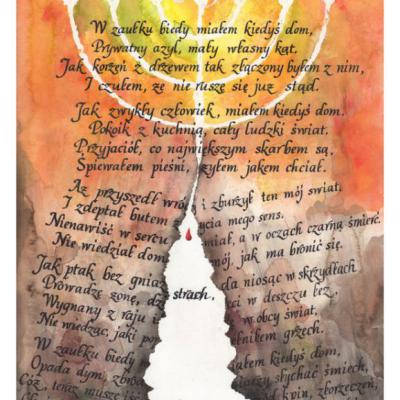 W zaułku biedy miałem kiedyś dom,
Prywatny azyl, mały własny kąt.
Jak korzeń z drzewem tak złączony byłem z nim,
I czułem, że nie ruszę się już stąd.
Jak zwykły człowiek, miałem kiedyś dom.
Pokoik z kuchnią, cały ludzki świat.
Przyjaciół, co największym skarbem są,
Śpiewałem pieśni, żyłem jakem chciał.
Aż przyszedł i zburzył ten mój świat,
I zdeptał butem życia mego sens.
Nienawiść w sercu miał, a w oczach czarną śmierć
Nie wiedział dom mój, jak ma bronić się.
Jak ptak bez gniazda niosąc w skrzydłach
Prowadzę żonę, strach, w deszczu łez,
Wygnany z raju w obcy świat,
Nie wiedząc, jaki grzech.
W zaułku biedy miałem kiedyś dom,
Opada dym słychać śmiech,
Cóż, teraz muszę kpin, złorzeczeń,